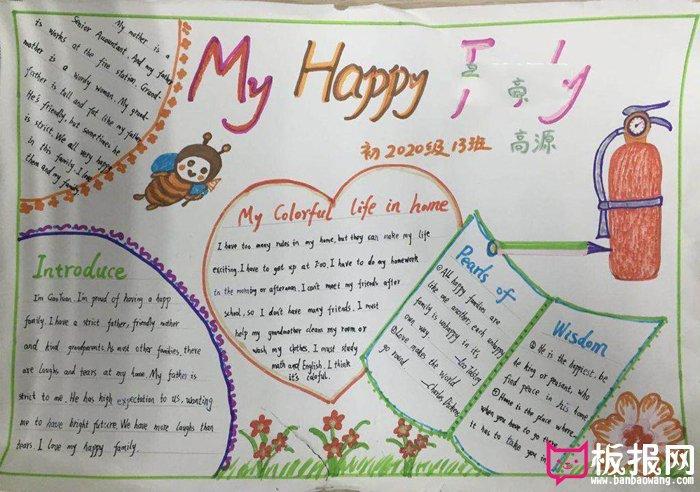 My mother is a
Senior Accountant. And my father
is works at the fire station. Grand-
mother is a wordy woman. My grand-
father is tall and fat like my father
He's friendly, but sometimes he
is strict. We all very happy
in this family. I love
them and my family.
My Happy
初2020级13班
高源
My Colorful life in home
I have too many rules in my home, but they can make my life
exciting. I have to get up at 7:00. I have to do my homework
in the or afternoon. I can't meet my friends after
school, so I don't have many friends. I must
help my grandmother clean my room or
wash my clothes. I must study
math and English. I think
it's
Introduce
I'm GaoYuan. I'm proud of having a happ
family. I have a strict father, friendly mother
and kind grandparents. As most other families, there
are laughs and tears at my home. My father is
strict to me. He has high expectation to us, wanting
me to have bright future. We have more laughs than
tears. I love my happy family.
Pearls of
①All happy families are
like one another, each unhappy
family is unhappy in it's
own way
②Love makes the world
go round
Charles
Wisdom
③ He is the happiest, be
he king or peasant, who
find peace in his home
④Home is the place where
when you have to go there
it has to take you in
板报网
www.banbaowang.com